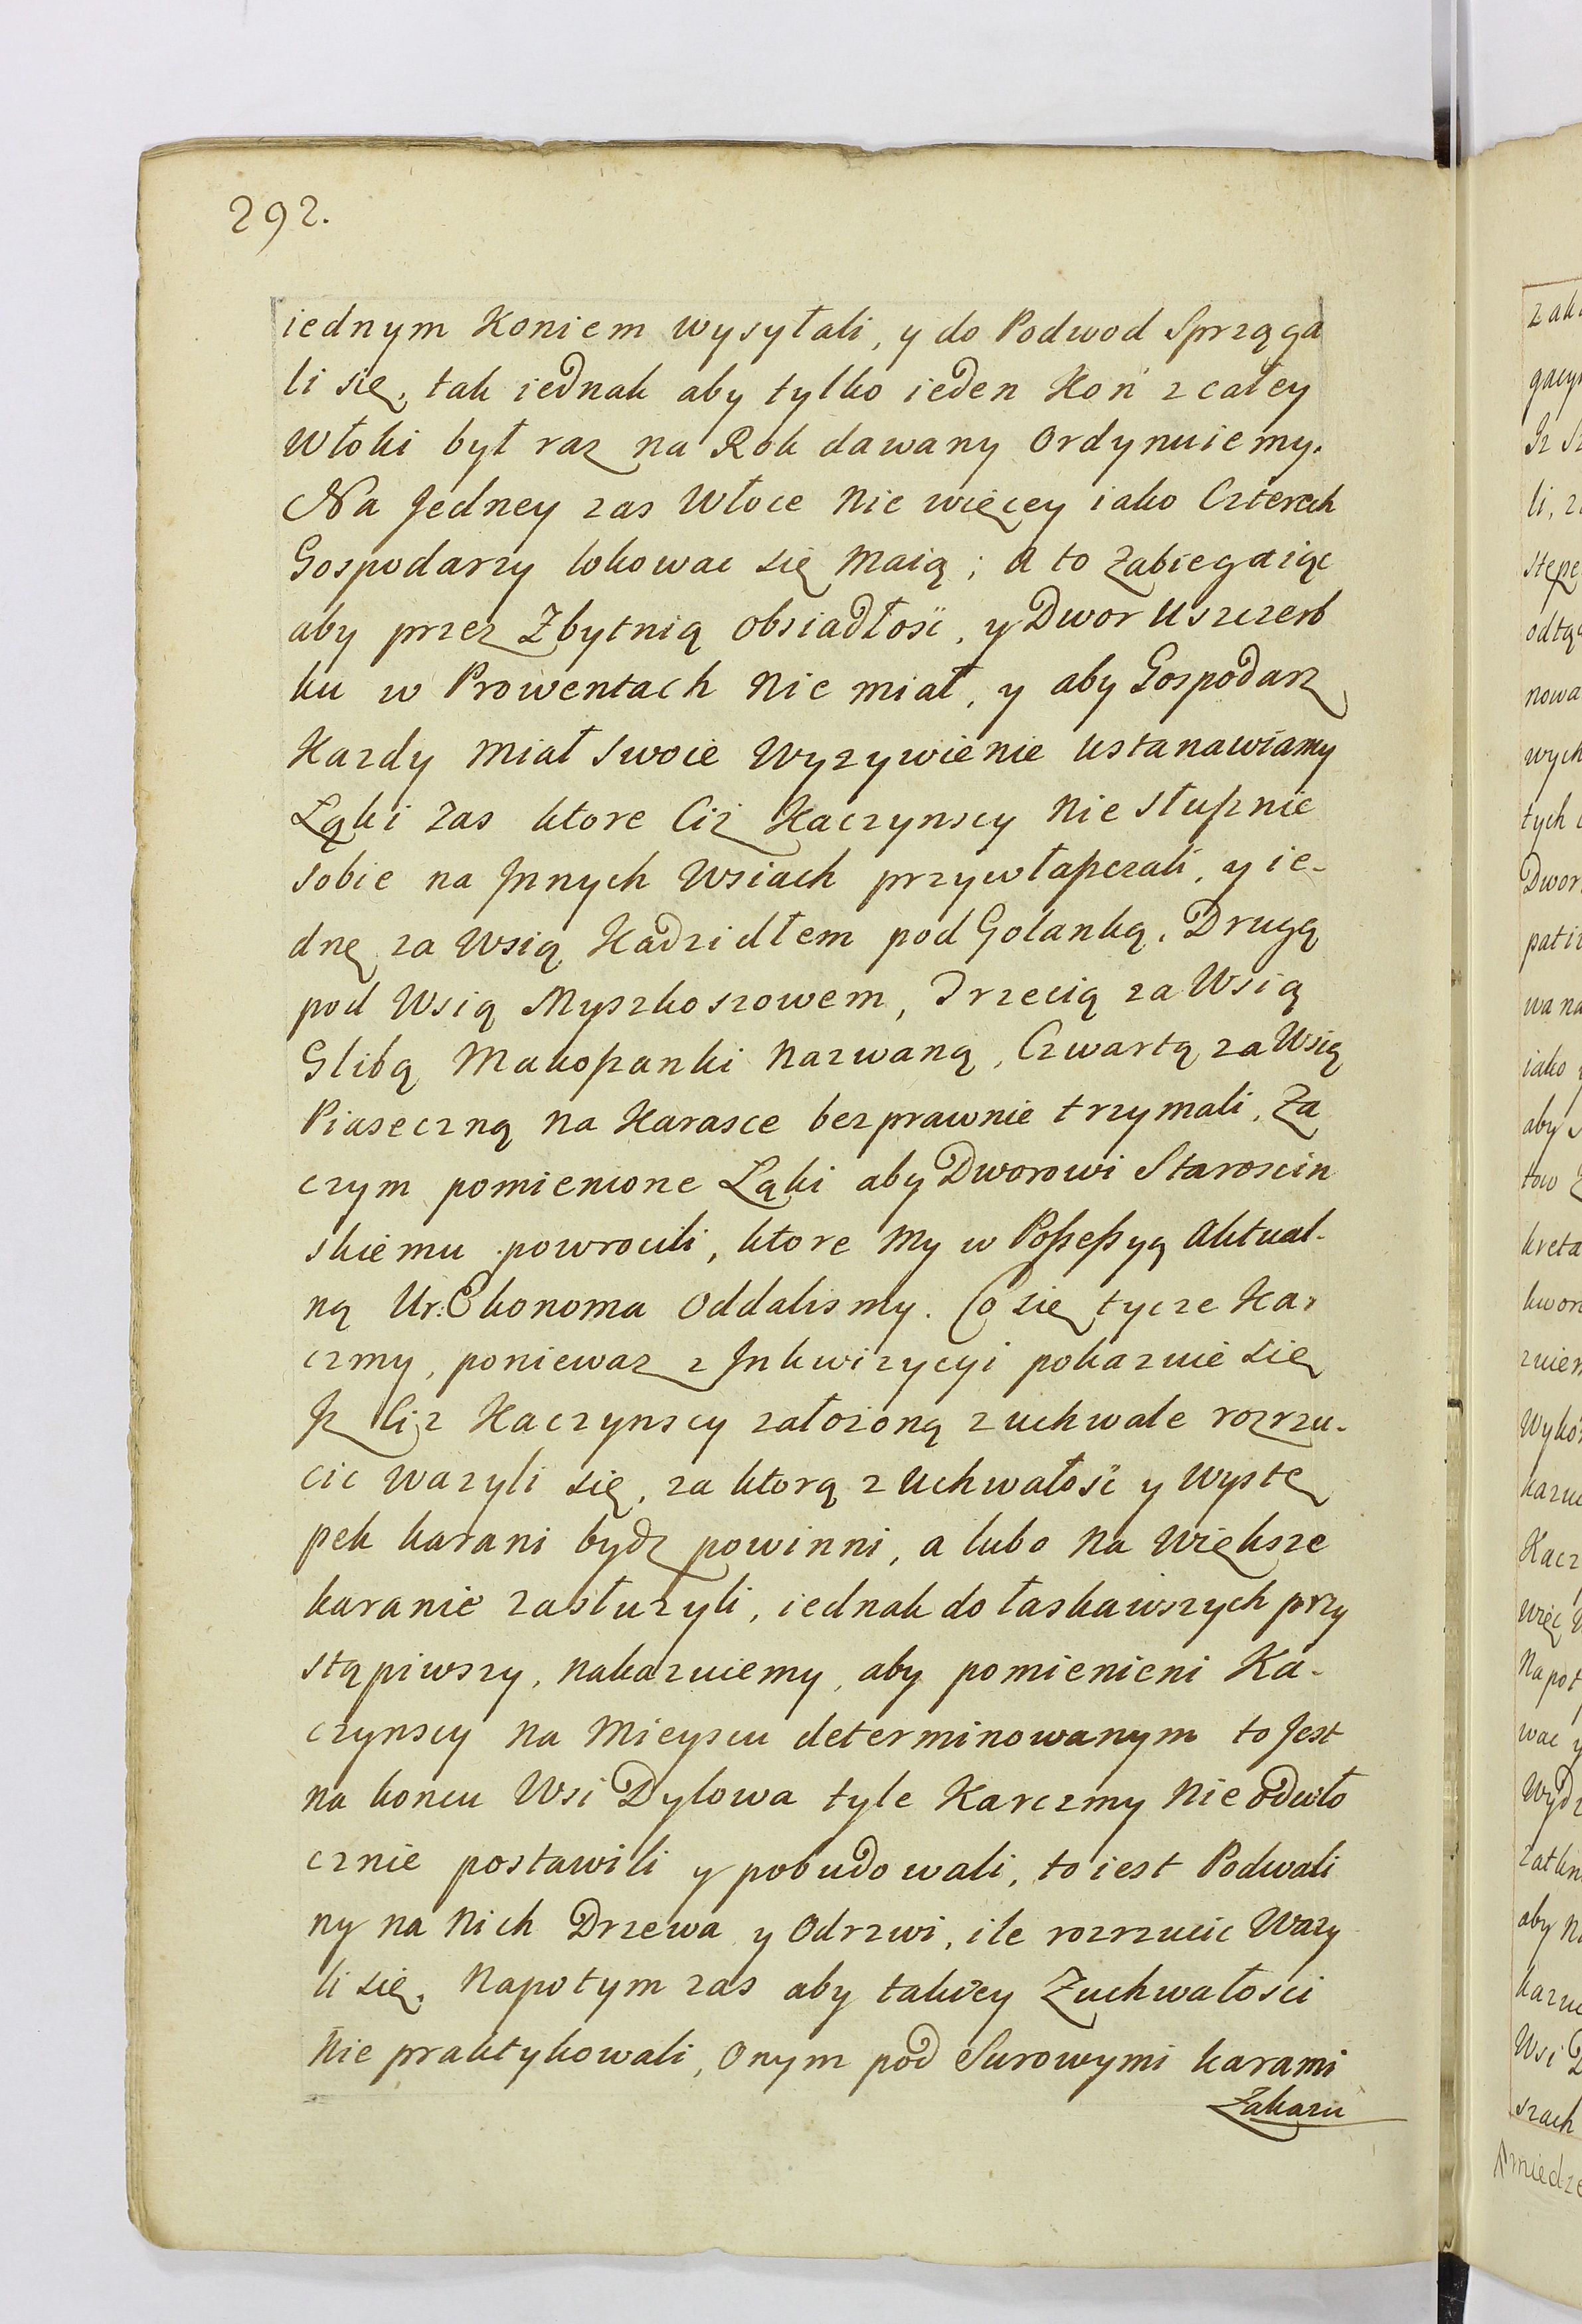 292.
iednym Koniem wysyłali, y do Podwod Sprzęga
li się, tak iednak aby tylko ieden Koń z całey
Włoki był raz na Rok dawany Ordynuiemy.
Na Jedney zas Włoce nie więcey iako Czterech
Gospodarzy lokowac się maią; a to Zabiegaiąc
aby przez Zbytnią obsiadłość, y Dwor uszczerb
ku w Prowentach nie miał, y aby Gospodarz
Kazdy miał swoie Wyzywienie ustanawiamy
Łąki zas ktore Ciż Kaczynscy Niesłuſznie
sobie na Jnnych Wsiach przywłaſzczali, y ie-
dnę za Wsią Kadzidłem pod Golanką, Drugą
pod Wsią Myszkoszowem, Trzecią za Wsią
Glibą Makoſzanki nazwaną, Czwartą za Wsią
Piaseczną na Karasce bezprawnie trzymali, Za
czym pomienione Łąki aby Dworowi Staroscin
skiemu powrocili, ktore my w Poſseſsyą Aktual-
ną Ur: Ekonoma Oddalismy. Co się tycze Kar
czmy, poniewaz z Jnkwizycyi pokazuie się
Jz Ciz Kaczynscy załozoną zuchwale rozrzu-
cic wazyli się, za ktorą zuchwałość y Wystę
pek karani bydz powinni, a lubo na większe
karanie zasłuzyli, iednak do łaskawszych przy
stąpiwszy, nakazuiemy, aby pomienieni Ka-
czynscy na Mieyscu determinowanym to Jest
na koncu Wsi Dylowa tyle Karczmy nieodwło
cznie postawili y pobudowali, to iest Podwali
ny na nich Drzewa y Odrzwi, ile rozrzucic Wazy
li się. Napotym zas aby takwey Zuchwałosci
nie praktykowali, Onym pod Surowymi karami
Zakazu